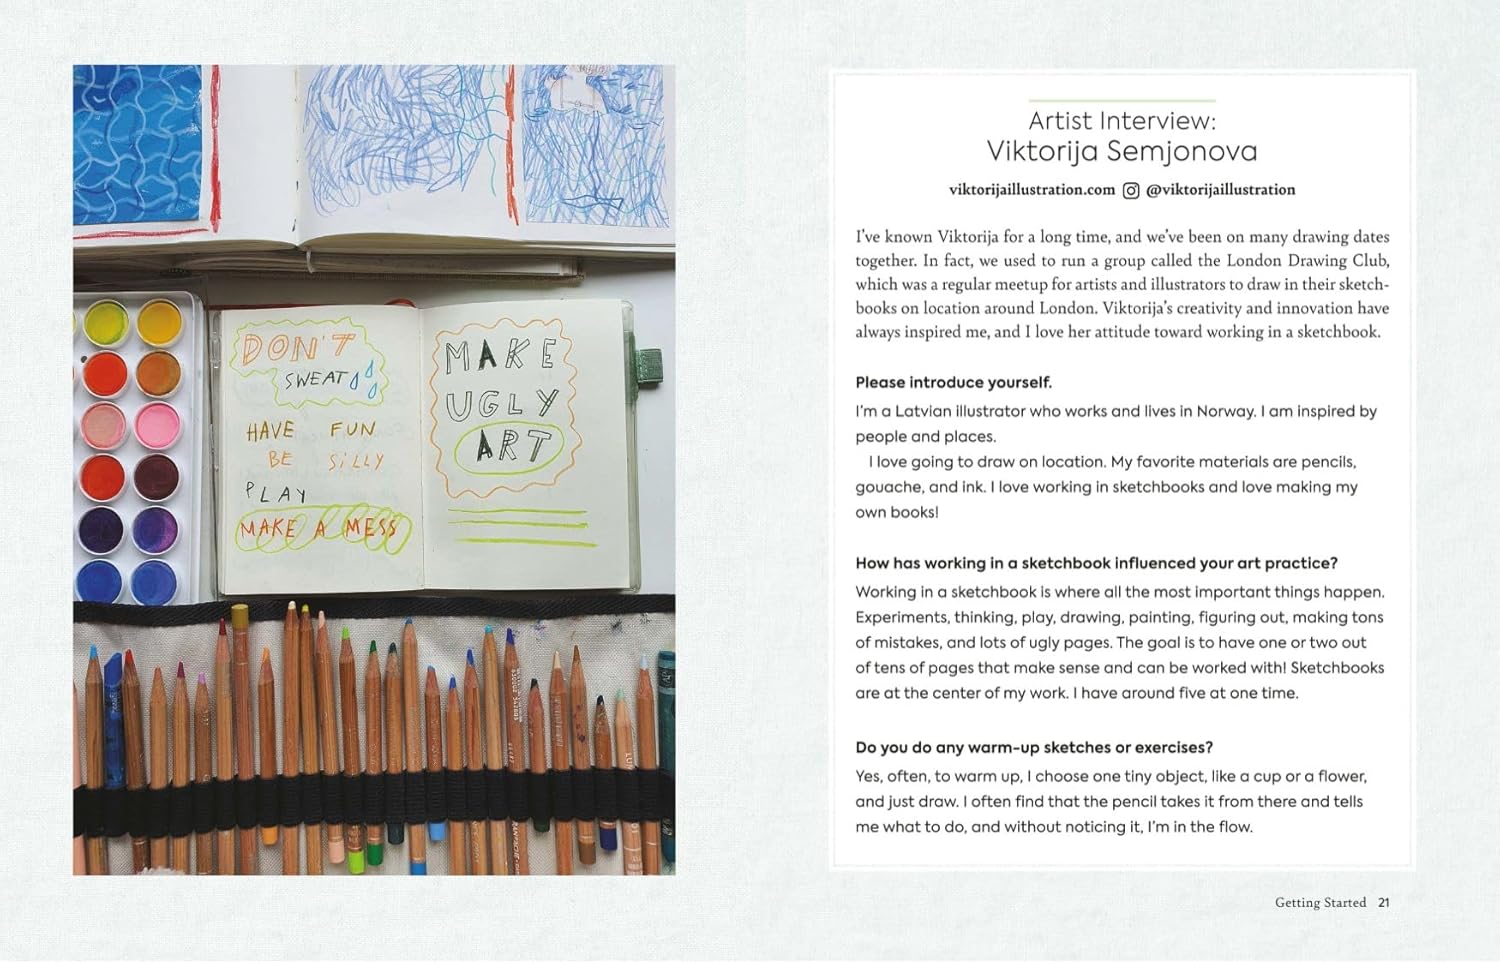 DON'T
SWEAT
HAVE FUN
BE SiLLY
PLAY
MAKE A MESS
MAKE
UGLY
ART
Artist Interview:
Viktorija Semjonova
viktorijaillustration.com @viktorijaillustration
I've known Viktorija for a long time, and we've been on many drawing dates
together. In fact, we used to run a group called the London Drawing Club,
which was a regular meetup for artists and illustrators to draw in their sketch-
books on location around London. Viktorija's creativity and innovation have
always inspired me, and I love her attitude toward working in a sketchbook.
Please introduce yourself.
I'm a Latvian illustrator who works and lives in Norway. I am inspired by
people and places.
I love going to draw on location. My favorite materials are pencils,
gouache, and ink. I love working in sketchbooks and love making my
own books!
How has working in a sketchbook influenced your art practice?
Working in a sketchbook is where all the most important things happen.
Experiments, thinking, play, drawing, painting, figuring out, making tons
of mistakes, and lots of ugly pages. The goal is to have one or two out
of tens of pages that make sense and can be worked with! Sketchbooks
are at the center of my work. I have around five at one time.
Do you do any warm-up sketches or exercises?
Yes, often, to warm up, I choose one tiny object, like a cup or a flower,
and just draw. I often find that the pencil takes it from there and tells
me what to do, and without noticing it, I'm in the flow.
Getting Started 21